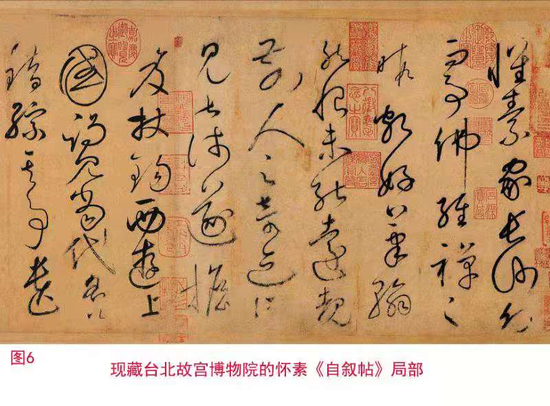 懷素家長沙幼
而事佛經禪之
暇頗好筆翰
然恨未能遠覩
前人之奇迹所
見甚淺遂擔
笈杖錫西遊上
國謁見當代名公
錯綜其事遺
图6
现藏台北故宫博物院的怀素《自叙帖》局部